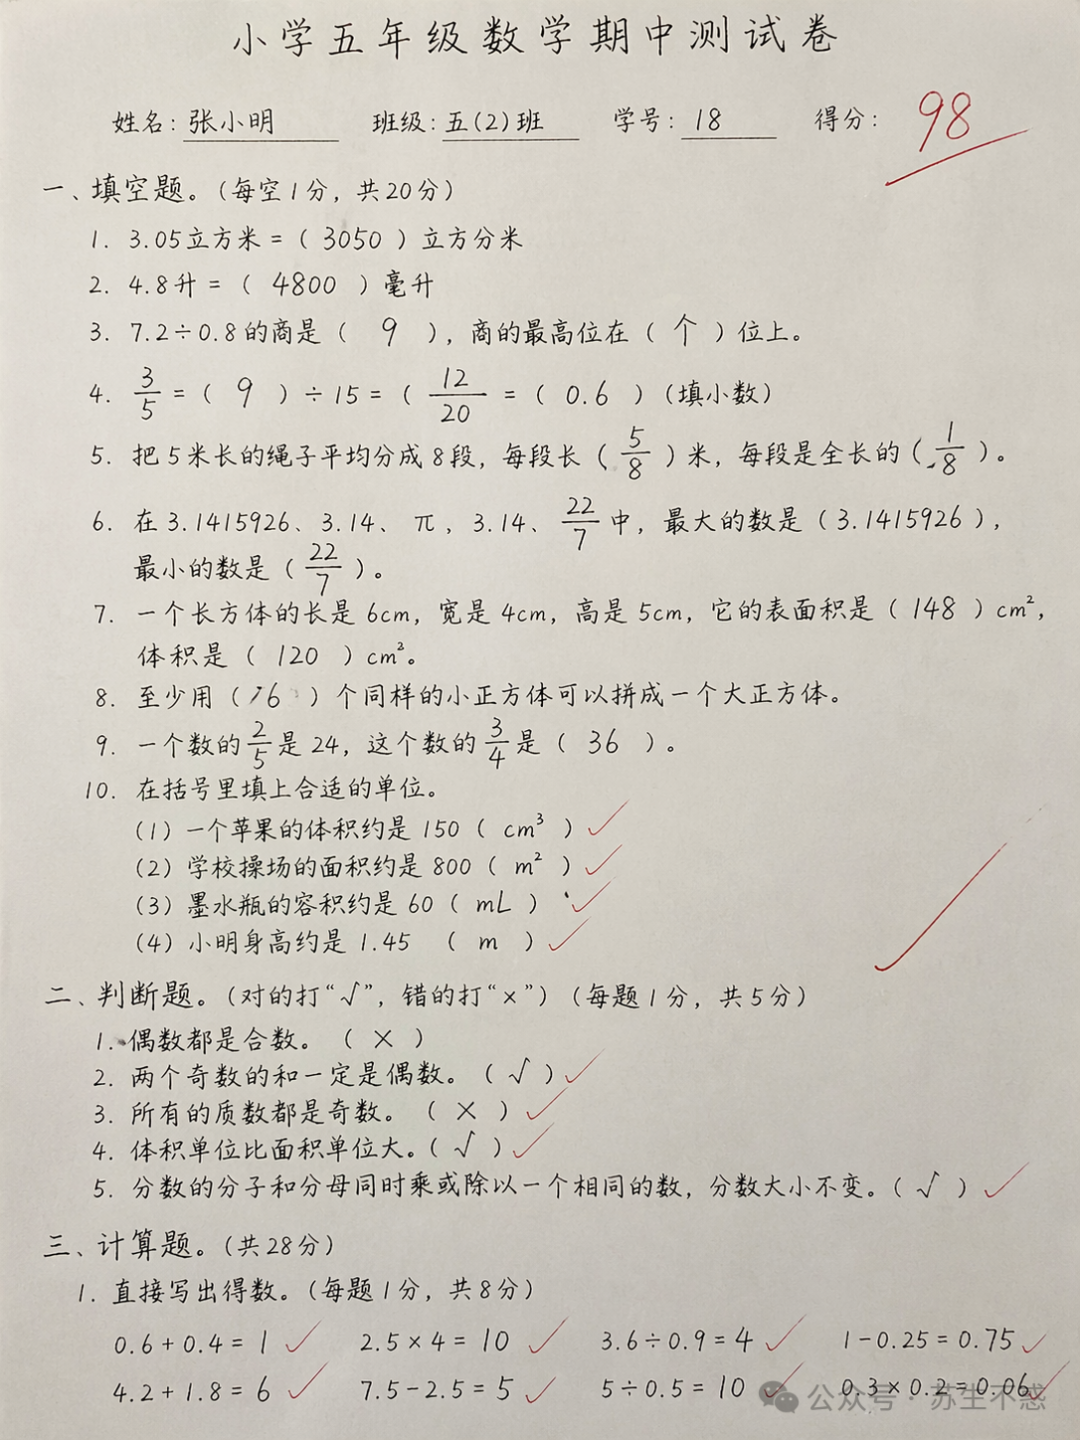 小学五年级数学期中测试卷
姓名：张小明 班级：五(2)班 学号：18 得分：98
一、填空题。（每空1分，共20分）
1. 3.05立方米 =（ 3050 ）立方分米
2. 4.8升 =（ 4800 ）毫升
3. 7.2÷0.8的商是（ 9 ），商的最高位在（ 个 ）位上。
4. 3/5 =（ 9 ）÷15 =（ 12/20 =（ 0.6 ）（填小数）
5. 把5米长的绳子平均分成8段，每段长（ 5/8 ）米，每段是全长的（ 1/8 ）。
6. 在3.1415926、3.14、π，3.14、22/7中，最大的数是（3.1415926），
最小的数是（ 22/7 ）。
7. 一个长方体的长是6cm，宽是4cm，高是5cm，它的表面积是（ 148 ）cm²，
体积是（ 120 ）cm²。
8. 至少用（ 16 ）个同样的小正方体可以拼成一个大正方体。
9. 一个数的2/5是24，这个数的3/4是（ 36 ）。
10. 在括号里填上合适的单位。
(1) 一个苹果的体积约是150（ cm³ ）✓
(2) 学校操场的面积约是800（ m² ）✓
(3) 墨水瓶的容积约是60（ mL ）✓
(4) 小明身高约是1.45 （ m ）✓
二、判断题。（对的打“√”，错的打“×”）（每题1分，共5分）
1. 偶数都是合数。（ × ）
2. 两个奇数的和一定是偶数。（ √ ）✓
3. 所有的质数都是奇数。（ × ）✓
4. 体积单位比面积单位大。（ √ ）✓
5. 分数的分子和分母同时乘或除以一个相同的数，分数大小不变。（ √ ）✓
三、计算题。（共28分）
1. 直接写出得数。（每题1分，共8分）
0.6+0.4=1 ✓ 2.5×4=10 ✓ 3.6÷0.9=4 ✓ 1-0.25=0.75 ✓
4.2+1.8=6 ✓ 7.5-2.5=5 ✓ 5÷0.5=10 ✓ 0.3×0.2=0.06 ✓
公众号·苏生不惑